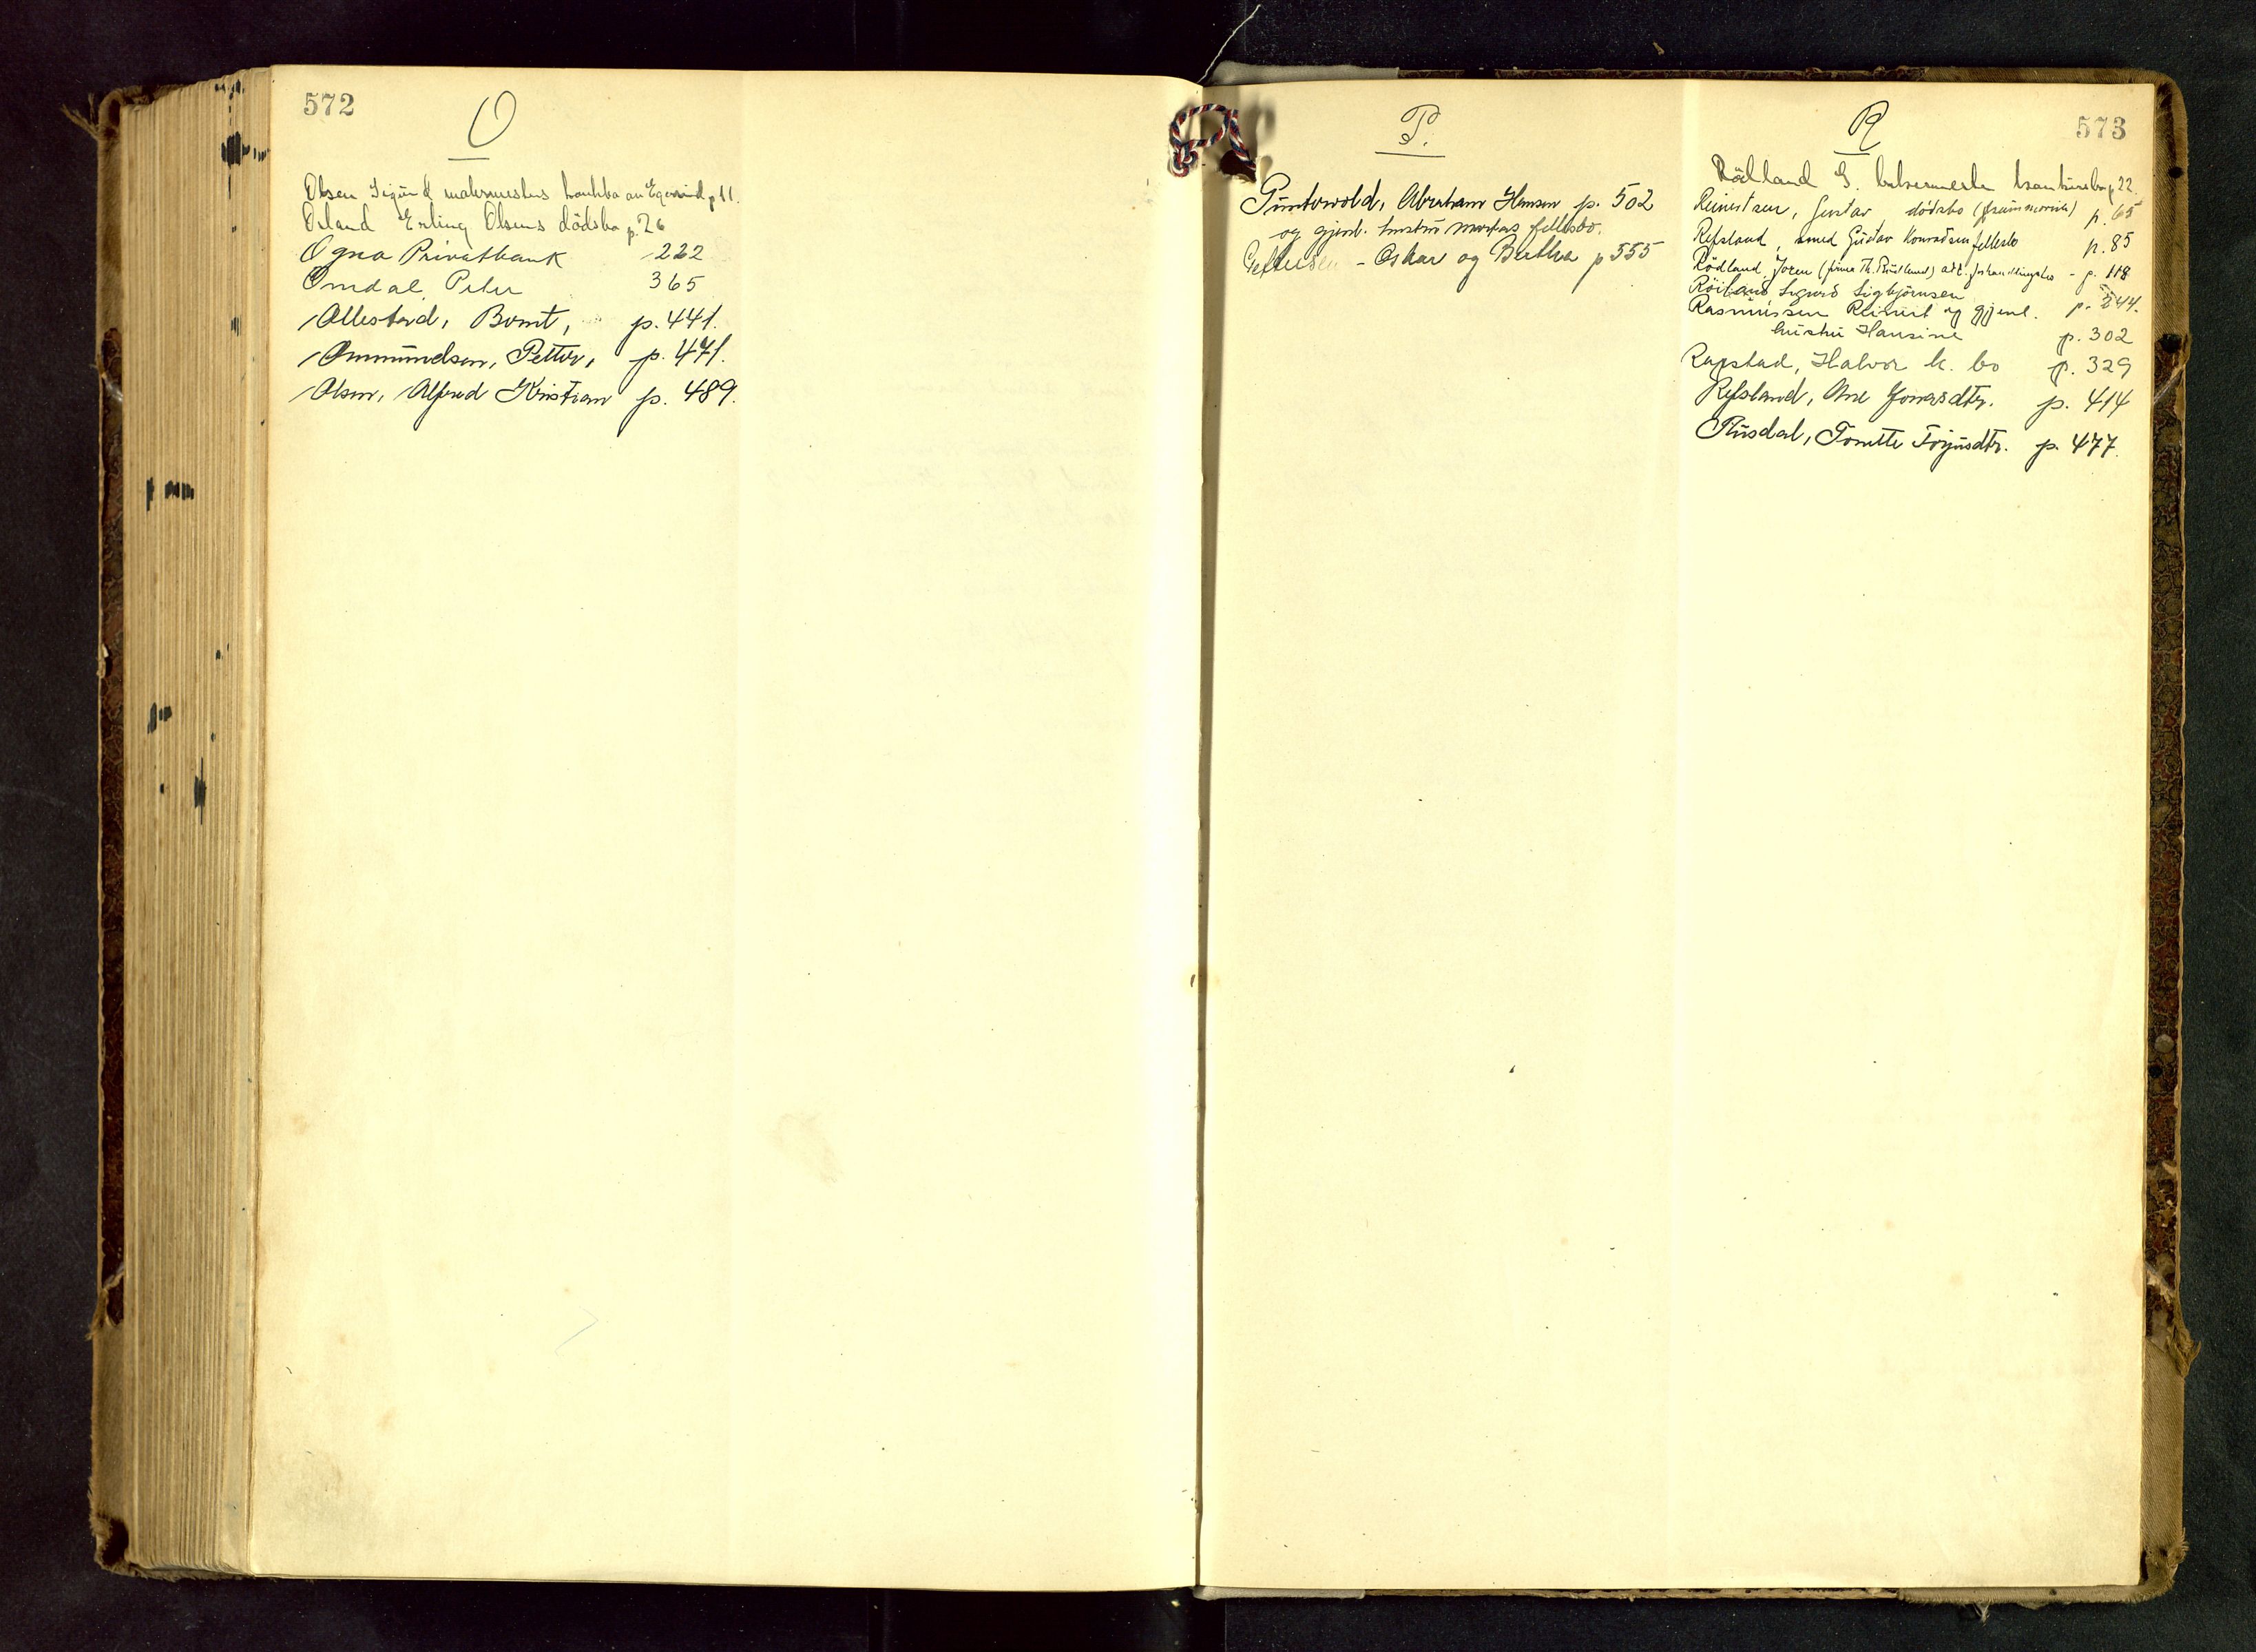 572
O
Olsen Sigurd malermesters konkbo av Egersund p 11.
Orland Erling Olsens dödsbo p. 26
Ogna Privatbank 222
Omdal, Peter 365
Ollestad, Bernt, p. 441.
Ommundsen, Petter, p. 471.
Olsen, Alfred Kristian p. 489.
P.
Puntervold, Abraham Hansen p. 502
og gjenl. hustru Marthas fellesbo.
Pettersen - Oskar og Bertha p 555
573
R
Rödland G. konkursbo p 22.
Reinertsen, Gustav, dödsbo p. 65
Refsland, Gustav Konradsen fellesbo p. 85
Rödland, Joren (firma Th. Rödland) - p. 118
Röiland Sigurd Sigbjörnsen p. 244.
Rasmussen Reinert og gjenl.
hustru Hansine p. 302
Rapstad, Halvor k. bo p. 329
Refsland, Ane Jonasdtr. p. 414
Rusdal, Tonette Torjusdtr. p. 477.